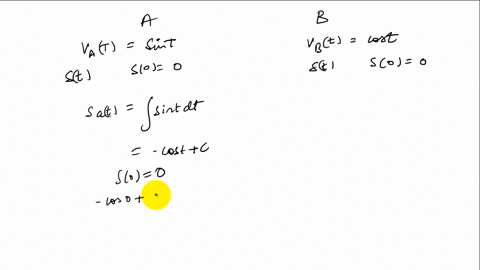 A
V_A(T) = sinT
s(t) s(0) = 0
s_a(t) = ∫ sint dt
= -cost + c
s(0) = 0
-cos 0 +
B
V_B(t) = cost
s(t) s(0) = 0